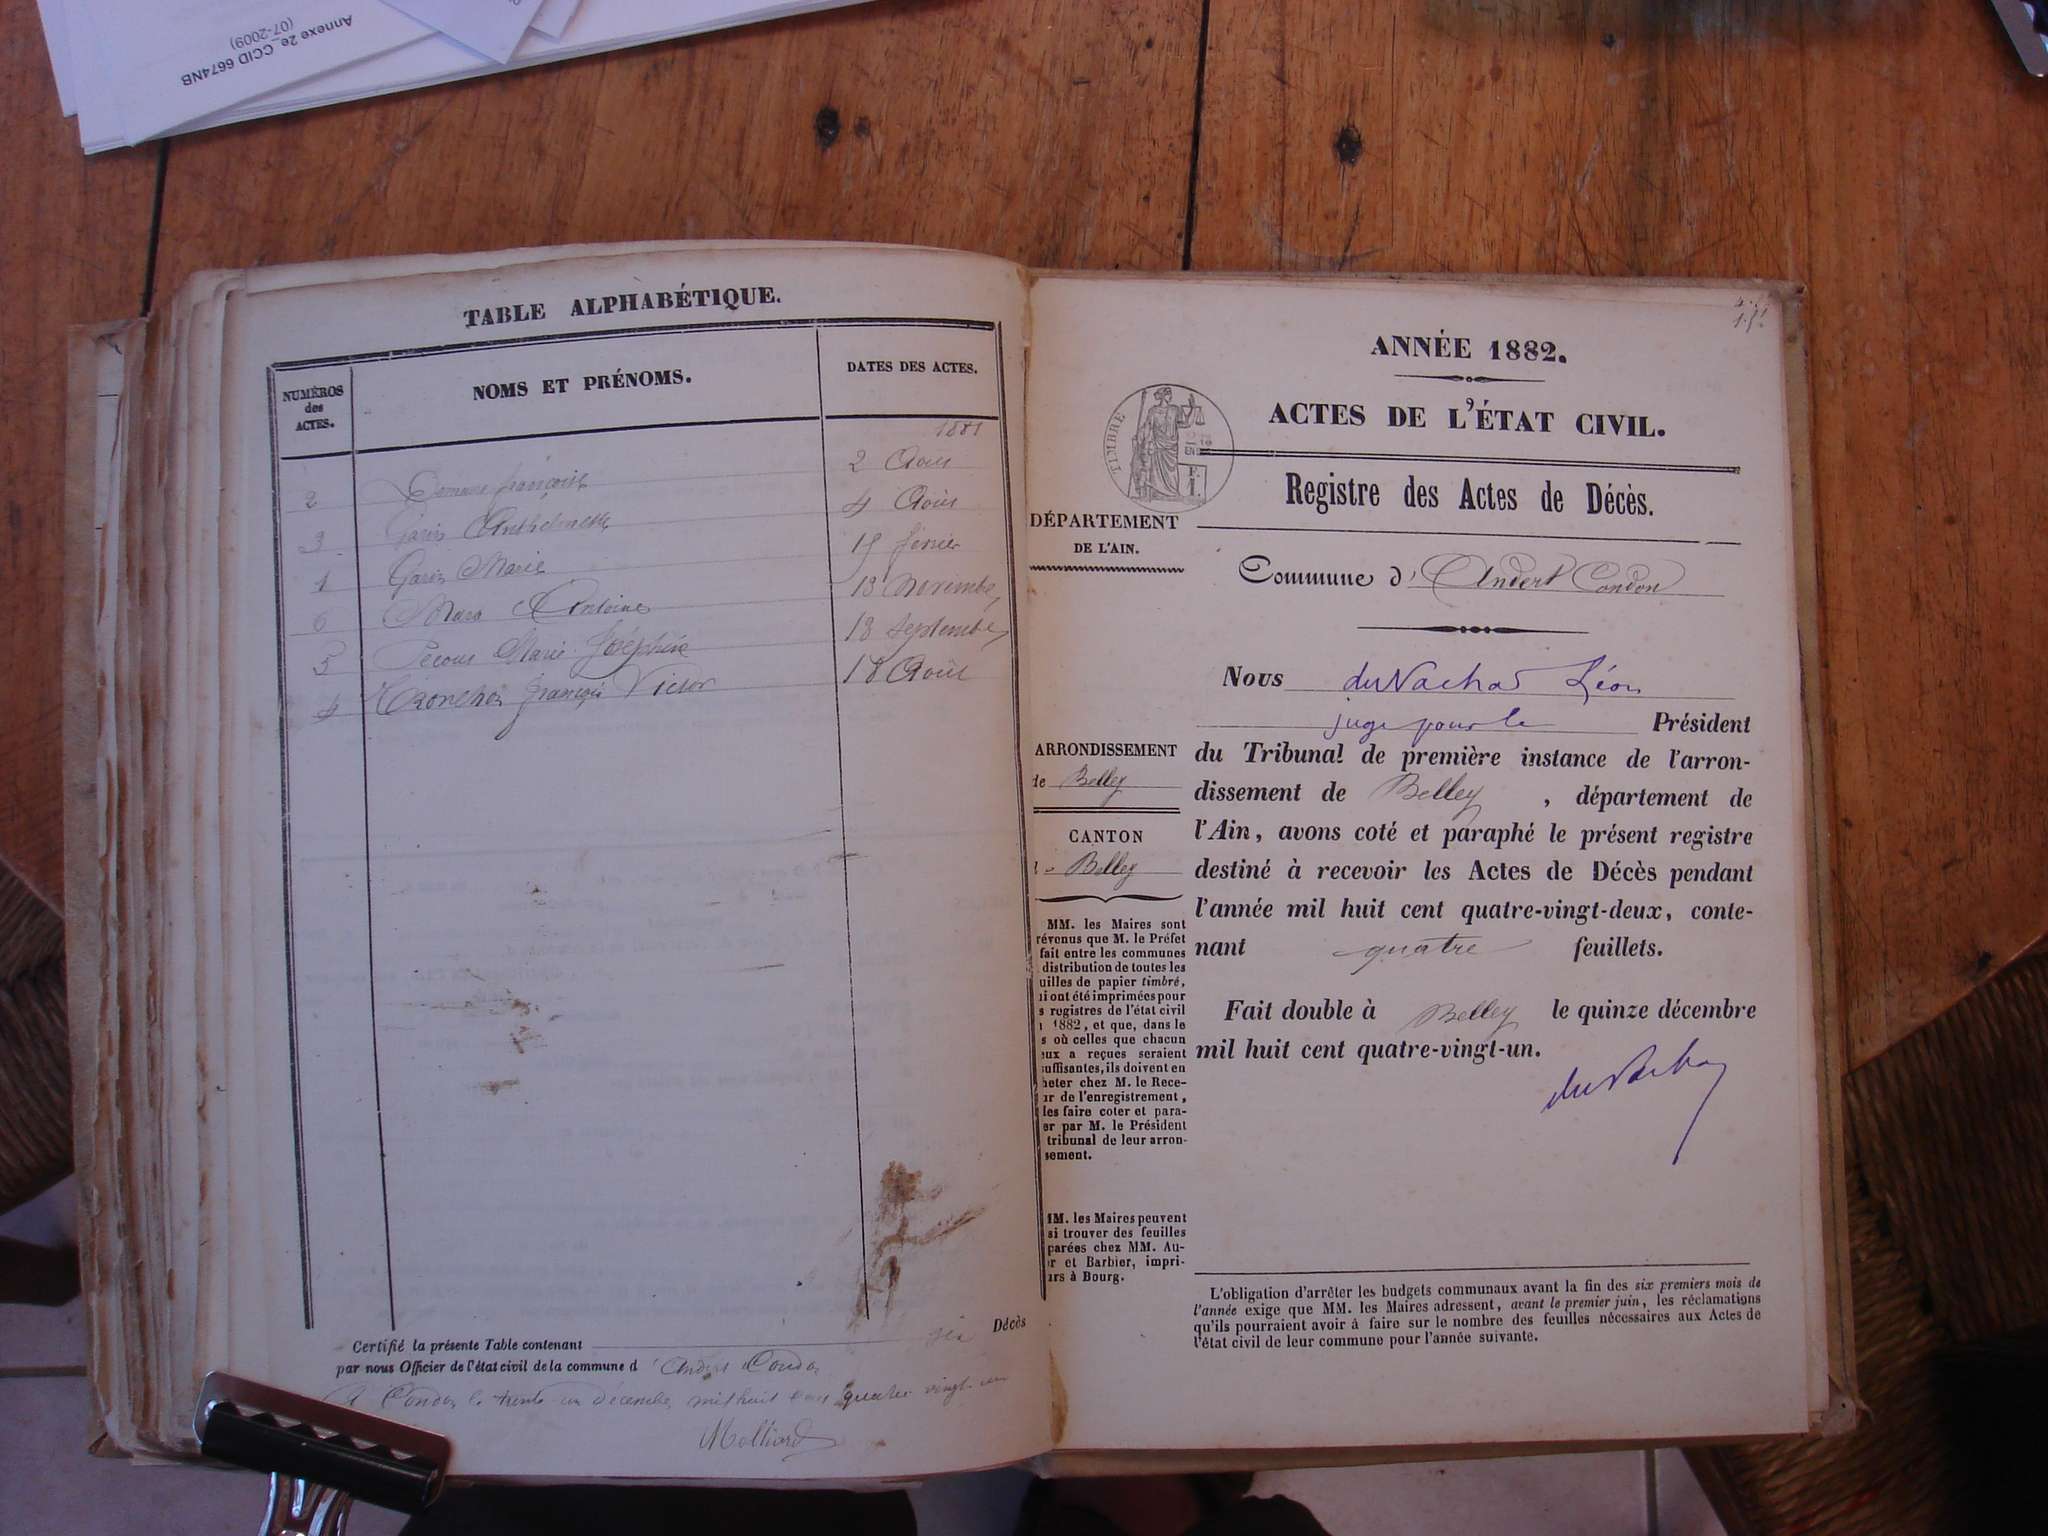 Annexe 2e_CCID 6674NB
(07-2009)
TABLE ALPHABÉTIQUE.
NUMÉROS
des
ACTES.
NOMS ET PRÉNOMS.
DATES DES ACTES.
1881
2 françoise 2 Août
3 Garin Anthelmette 4 Août
1 Garin Marie 15 février
6 Antoine 13 Novembre
5 Marie Joséphine 18 Septembre
4 françois Victor 18 Août
Certifié la présente Table contenant six Décès
par nous Officier de l'état civil de la commune d'Andert Condon
A Condon le trente un décembre mil huit cent quatre vingt un
Molliard
ANNÉE 1882.
TIMBRE
ACTES DE L'ÉTAT CIVIL.
Registre des Actes de Décès.
DÉPARTEMENT
DE L'AIN.
Commune d'Andert Condon
Nous Léon
juge pour le Président
du Tribunal de première instance de l'arron-
dissement de Belley, département de
l'Ain, avons coté et paraphé le présent registre
destiné à recevoir les Actes de Décès pendant
l'année mil huit cent quatre-vingt-deux, conte-
nant quatre feuillets.
Fait double à Belley le quinze décembre
mil huit cent quatre-vingt-un.
ARRONDISSEMENT
de Belley
CANTON
Belley
MM. les Maires sont
révenus que M. le Préfet
fait entre les communes
distribution de toutes les
uilles de papier timbré,
ui ont été imprimées pour
s registres de l'état civil
1882, et que, dans le
s où celles que chacun
eux a reçues seraient
suffisantes, ils doivent en
heter chez M. le Rece-
ur de l'enregistrement,
les faire coter et para-
er par M. le Président
tribunal de leur arron-
sement.
MM. les Maires peuvent
si trouver des feuilles
parées chez MM. Au-
r et Barbier, impri-
urs à Bourg.
L'obligation d'arrêter les budgets communaux avant la fin des six premiers mois de
l'année exige que MM. les Maires adressent, avant le premier juin, les réclamations
qu'ils pourraient avoir à faire sur le nombre des feuilles nécessaires aux Actes de
l'état civil de leur commune pour l'année suivante.